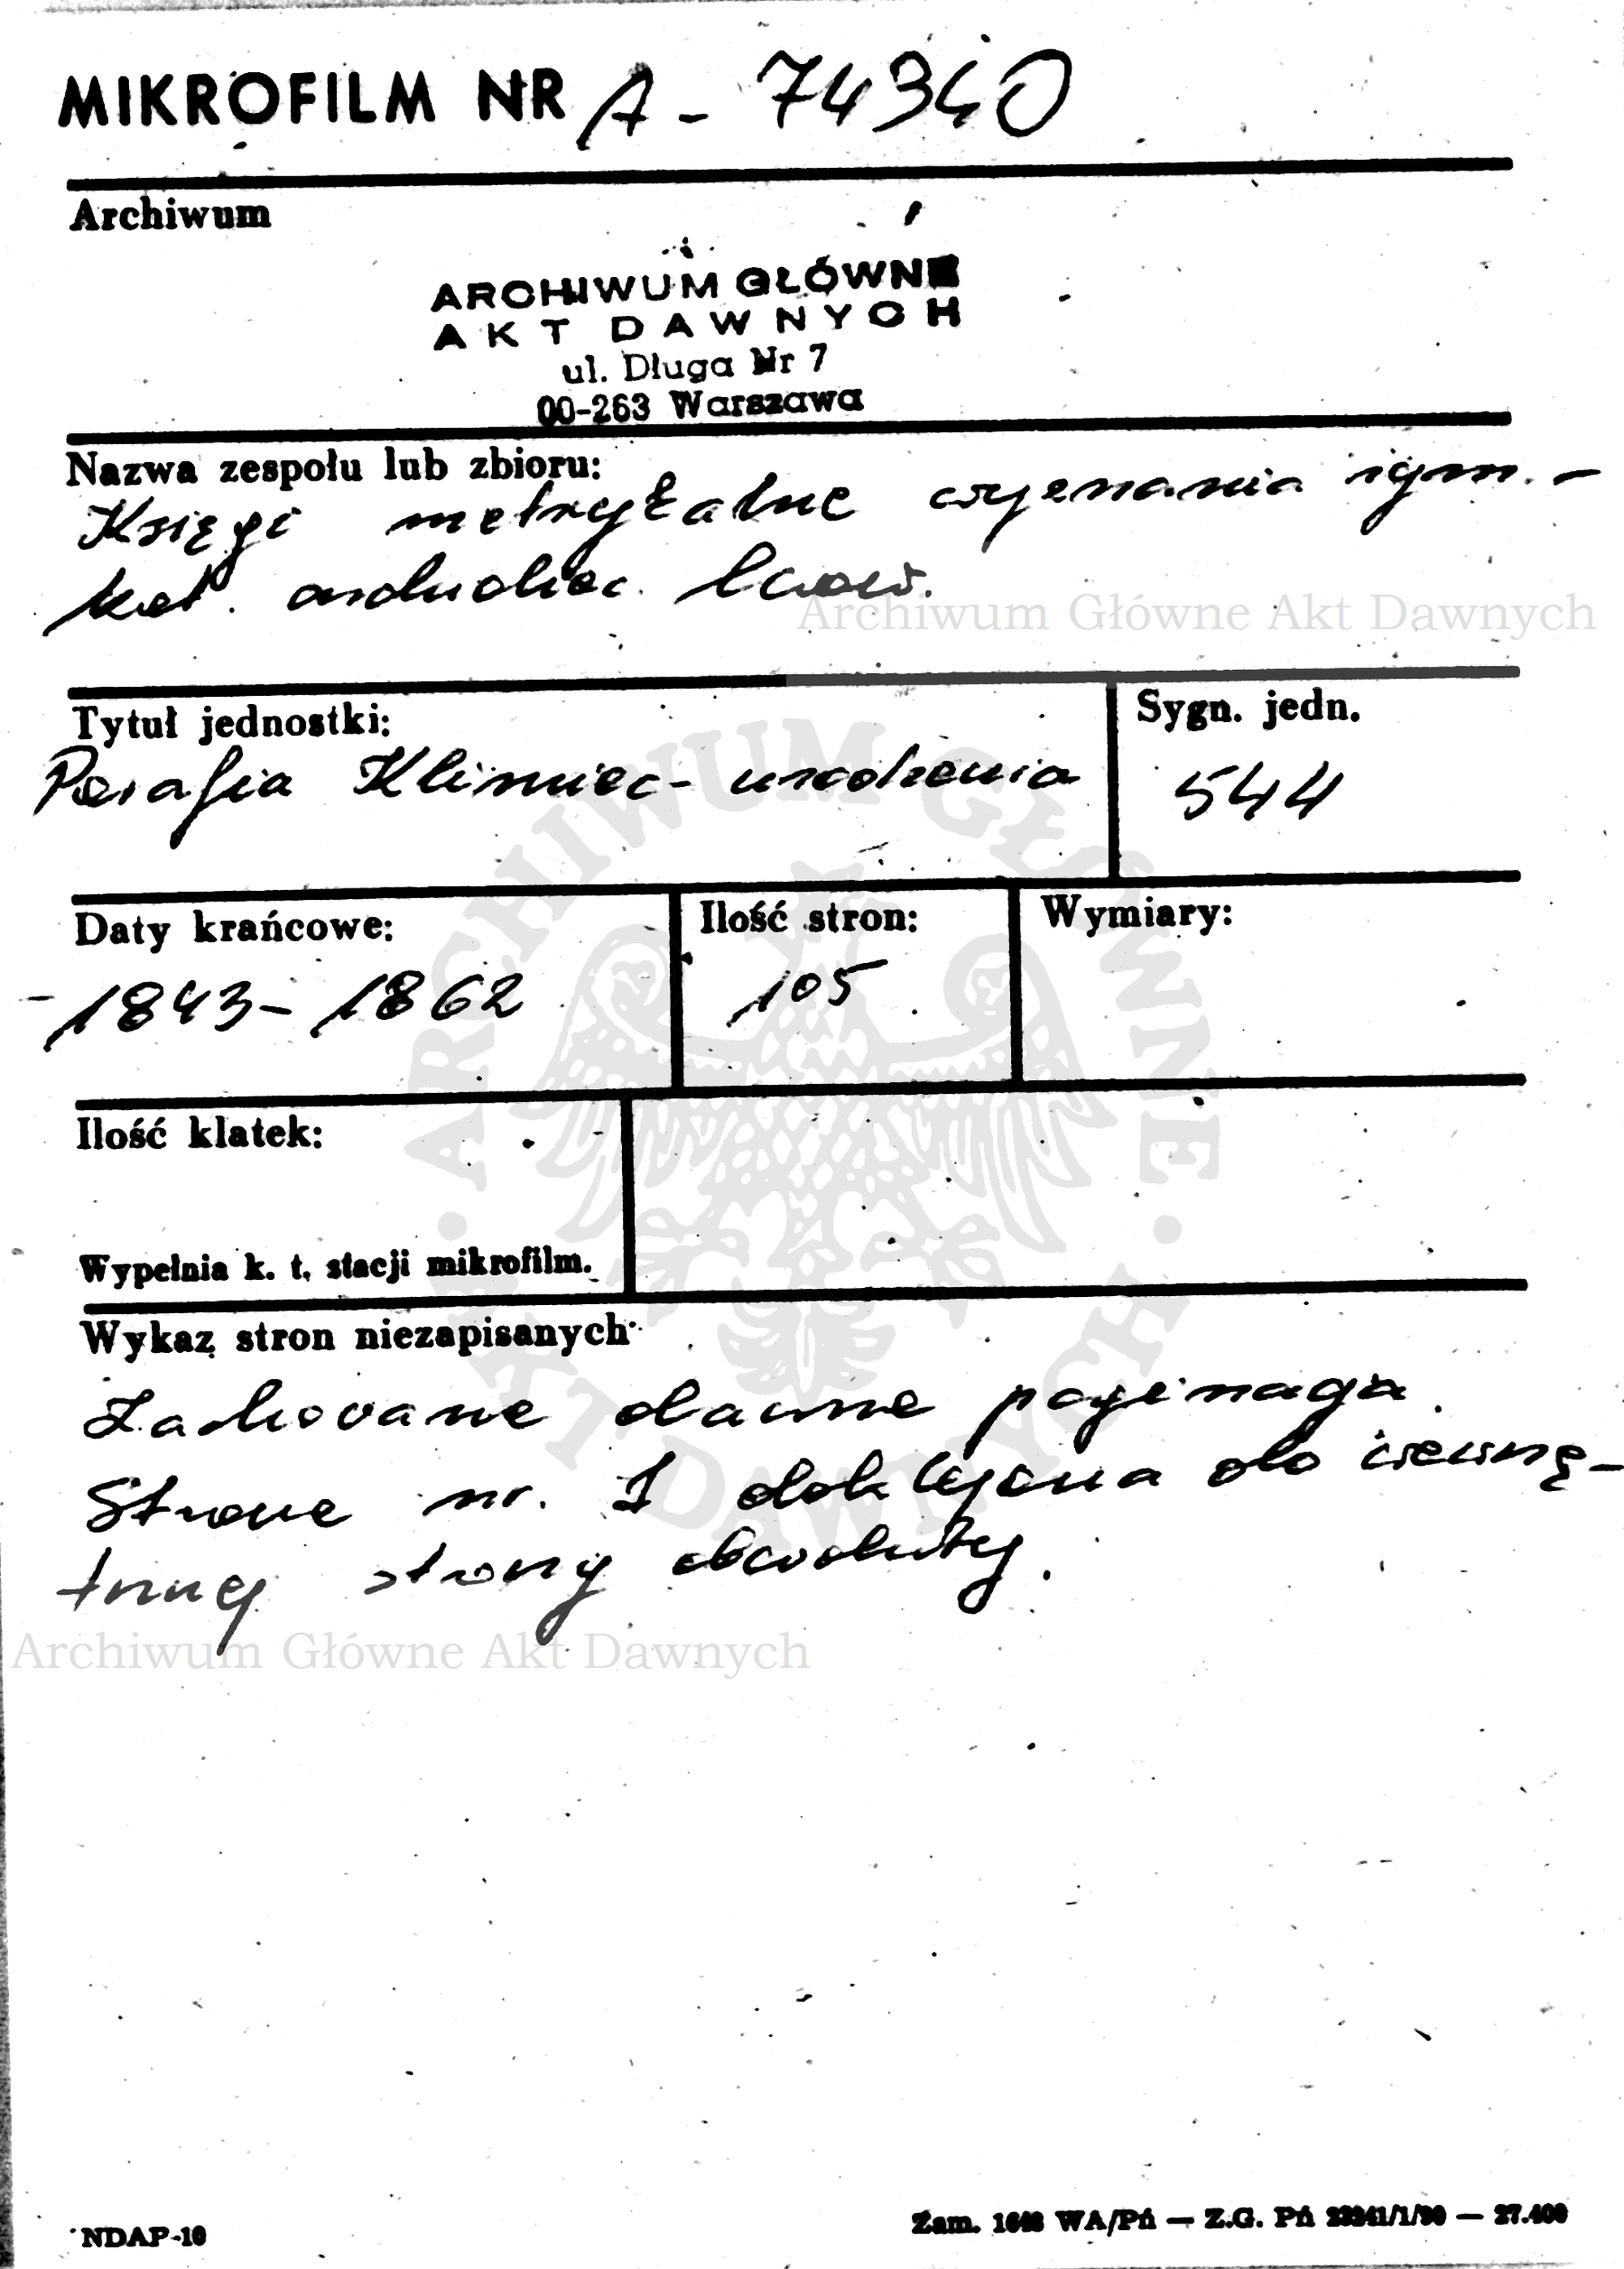 MIKROFILM NR A - 74340
Archiwum
ARCHIWUM GŁÓWNE
AKT DAWNYCH
ul. Długa Nr 7
00-263 Warszawa
Nazwa zespołu lub zbioru:
Księgi metrykalne wyznania rzym.-
kat. archidiec. lwow.
Archiwum Główne Akt Dawnych
Tytuł jednostki:
Parafia Klimiec - urodzenia
Sygn. jedn.
544
Daty krańcowe:
1843 - 1862
Ilość stron:
105
Wymiary:
Ilość klatek:
Wypełnia k. t. stacji mikrofilm.
Wykaz stron niezapisanych
Zachowane dawne paginacja.
Strona nr. 1 doklejona do wewnę-
trznej strony obwoluty.
Archiwum Główne Akt Dawnych
ARCHIWUM GŁÓWNE AKT DAWNYCH
NDAP-10
Zam. WA/Pń — Z.G. Pń — 27.400